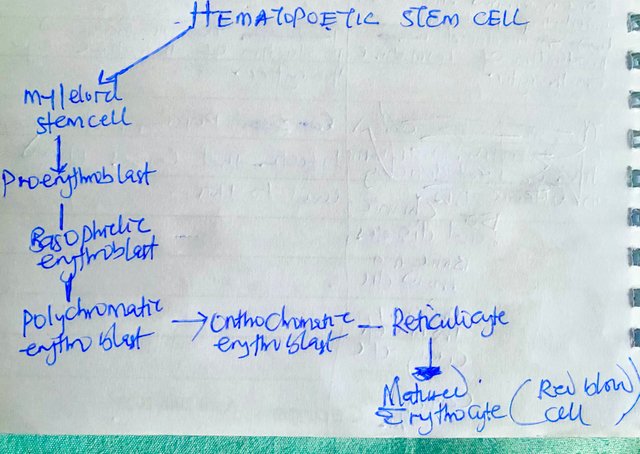 HEMATOPOETIC STEM CELL
Myleloid
stem cell
Proerythroblast
Basophilic
erythroblast
Polychromatic
erythroblast
Onthochromatic
erythroblast
Reticulicyte
Matured
Erythrocyte (Red blow
cell)